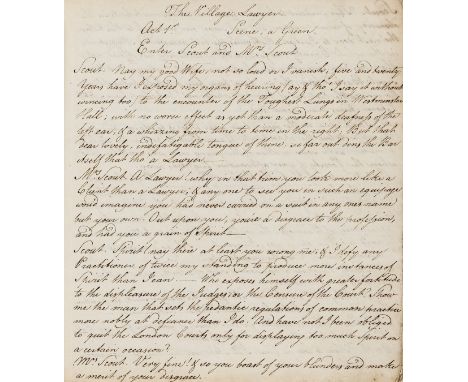 The Village Lawyer
Act 1st Scene, a Green
Enter Scout and Mrs Scout
Scout. Nay my good Wife, not so loud or I vanish, five and twenty
Years have I exposed my organs of hearing (ay & tho' I say it without
wincing too) to the encounter of the Toughest Lungs in Westminster
Hall; with no worse effect as yet than a moderate deafness of the
left ear, & a whizzing from time to time in the right, But that
dear lovely, indefatigable tongue of thine so far out dins the Bar
itself that tho' a Lawyer—
Mrs Scout A Lawyer! why in that trim you look more like a
Client than a Lawyer, & any one to see you in such an equipage
wou'd imagine you had never carried on a suit in any ones name
but your own. Out upon you, you're a disgrace to the profession,
and had you a grain of Spirit—
Scout. Spirit! nay there at least you wrong me, & I defy any
Practitioner of twice my Standing to produce more instances of
Spirit than I can — Who exposes himself with greater fortitude
to the displeasure of the Judges, or the Censure of the Court. Show
me the man that sets the pedantic regulations of common practice
more nobly at defiance than I do. And have not I been obliged
to quit the London Courts only for displaying too much Spirit on
a certain occasion?
Mrs Scout. Very fine!! & so you boast of your blunders and make
a merit of your disgrace.